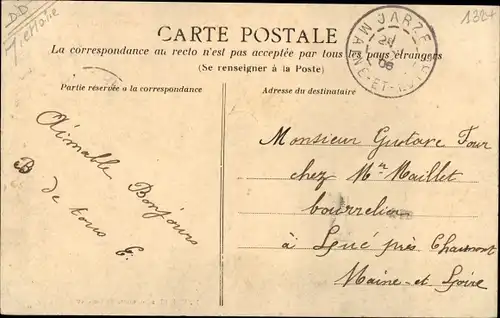 D.D
1324
CARTE POSTALE
La correspondance au recto n'est pas acceptée par tous les pays étrangers
(Se renseigner à la Poste)
JARZÉ
24
06
MAINE-ET-LOIRE
Partie réservée à la correspondance
Adresse du destinataire
Aimable Bonjours
de tous
B
E.
Monsieur Gustave Four
chez Mr Maillet
bourrelier
à Lué près Chaumont
Maine-et-Loire